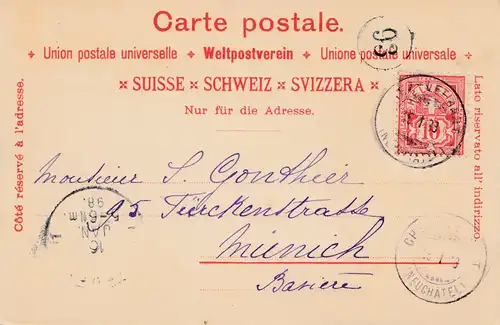 Carte postale.
33
Union postale universelle Weltpostverein Unione postale universale
SUISSE SCHWEIZ SVIZZERA
Nur für die Adresse.
Côté réservé à l'adresse.
Lato riservato all' indirizzo.
10
Monsieur S. Gonthier
95 Türckenstrasse
Münich
Bavière
16
JAN.
5-6 Nm
98.
(NEUCHÂTEL)